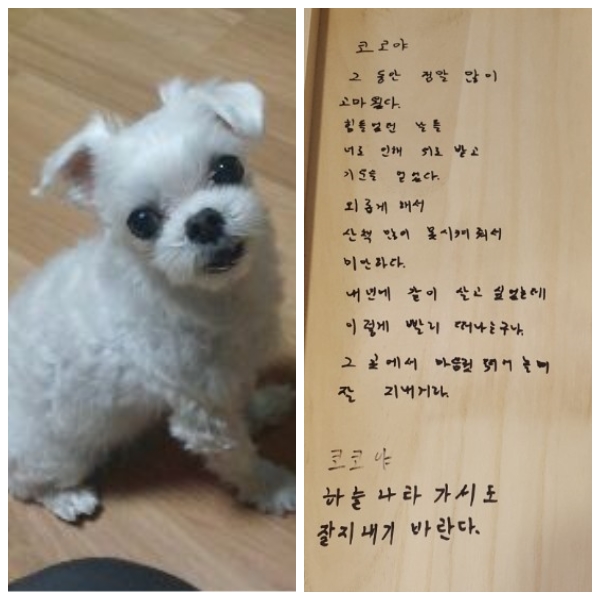 코코야
그 동안 정말 많이
고마웠다.
힘들었던 날들
너로 인해 위로 받고
기쁨을 얻었다.
외롭게 해서
산책 많이 못시켜줘서
미안하다.
내년에 같이 살고 싶었는데
이렇게 빨리 떠나는구나.
그 곳에서 마음껏 뛰어 놀며
잘 지내거라.
코코야
하늘 나라 가서도
잘지내기 바란다.